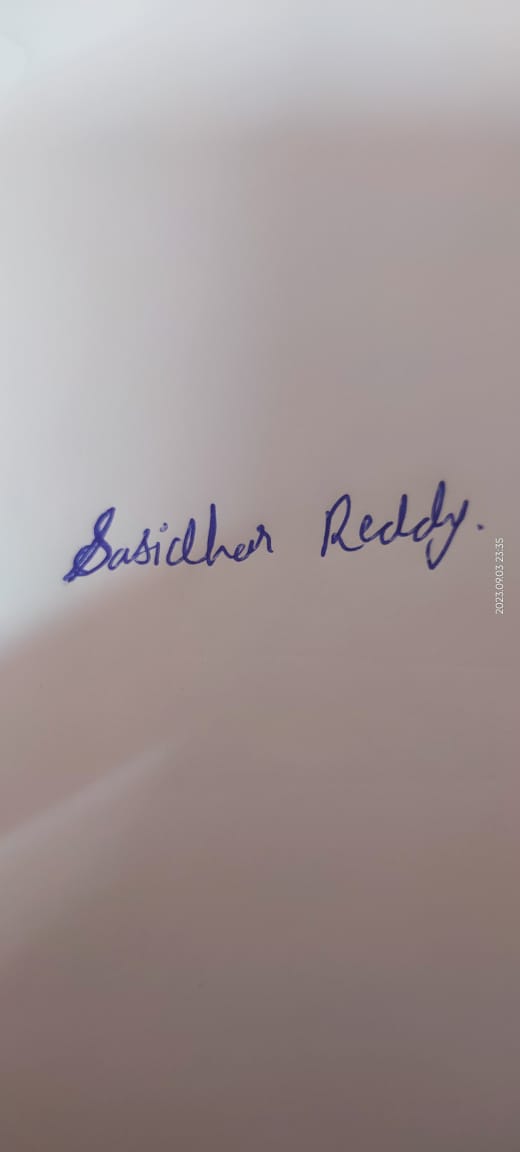 Sasidhar Reddy.
2023.09.03 23:35